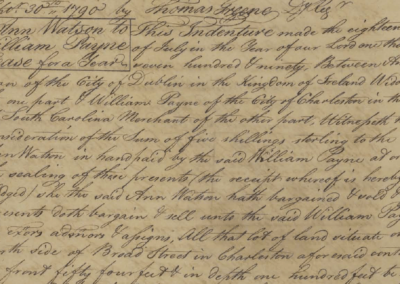 Oct. 30th 1790 by Thomas
Ann Watson to This Indenture made the eighteen
William Payne of July in the Year of our Lord on tho
Lease for a Year seven hundred & ninety, Between An
son of the City of Dublin in the Kingdom of Ireland Wid
one part, & William Payne of the City of Charleston in th
South Carolina Merchant of the other part, Witnesseth
nsideration of the Sum of five shillings sterling to the
nn Watson in hand paid by the said William Payne at or
sealing of these presents, the receipt whereof is hereby
dged / she the said Ann Watson hath bargained & sold &
resents doth bargain & sell unto the said William Pay
exors admors & assigns, All that lot of land situate on
rth side of Broad Street in Charleston aforesaid cont
front fifty four feet & in depth one hundred feet be